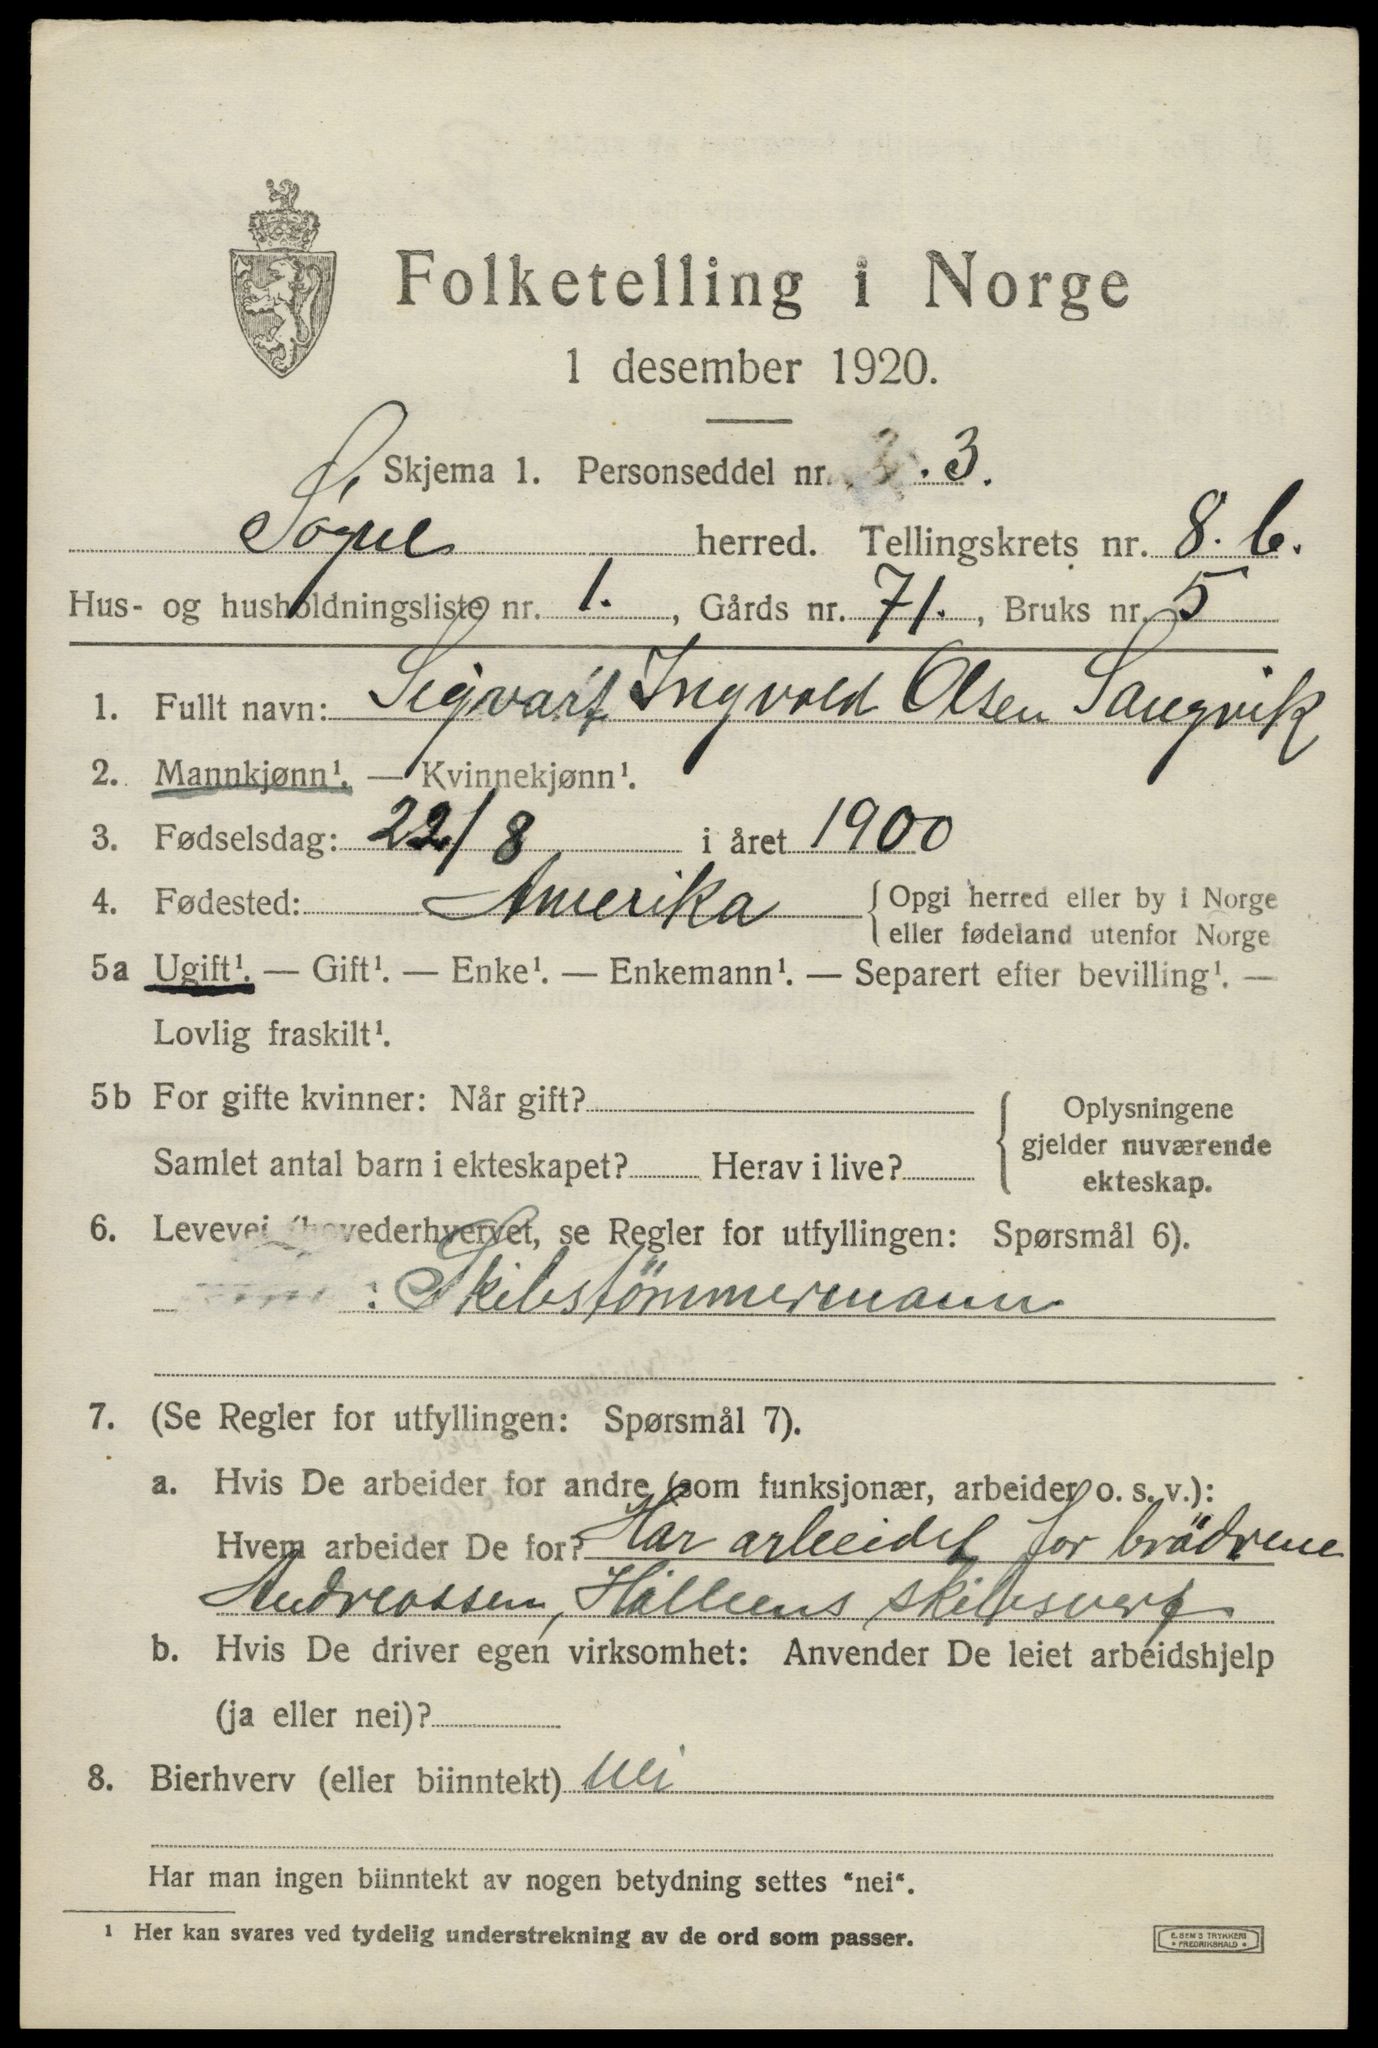 Folketelling i Norge
1 desember 1920.
Skjema 1. Personseddel nr. 3.
Søgne herred. Tellingskrets nr. 8. b.
Hus- og husholdningsliste nr. 1. , Gårds nr. 71. , Bruks nr. 5
1. Fullt navn: Sigvart Ingvold Olsen Sangvik
2. Mannkjønn¹. — Kvinnekjønn¹.
3. Fødselsdag: 22/8 i året 1900
4. Fødested: Amerika { Opgi herred eller by i Norge
eller fødeland utenfor Norge
5a Ugift¹. — Gift¹. — Enke¹. — Enkemann¹. — Separert efter bevilling¹. —
Lovlig fraskilt¹.
5b For gifte kvinner: Når gift? { Oplysningene
gjelder nuværende
Samlet antal barn i ekteskapet? Herav i live?
ekteskap.
6. Levevei (hovederhvervet, se Regler for utfyllingen: Spørsmål 6).
: Skibstömmermann
7. (Se Regler for utfyllingen: Spørsmål 7).
a. Hvis De arbeider for andre (som funksjonær, arbeider o. s. v.):
Hvem arbeider De for? Har arbeidet for brödrene
Andreassen, Hälleens skibsverf
b. Hvis De driver egen virksomhet: Anvender De leiet arbeidshjelp
(ja eller nei)?
8. Bierhverv (eller biinntekt) nei
Har man ingen biinntekt av nogen betydning settes "nei".
¹ Her kan svares ved tydelig understrekning av de ord som passer.
E. SEM'S TRYKKERI
• FREDRIKSHALD •